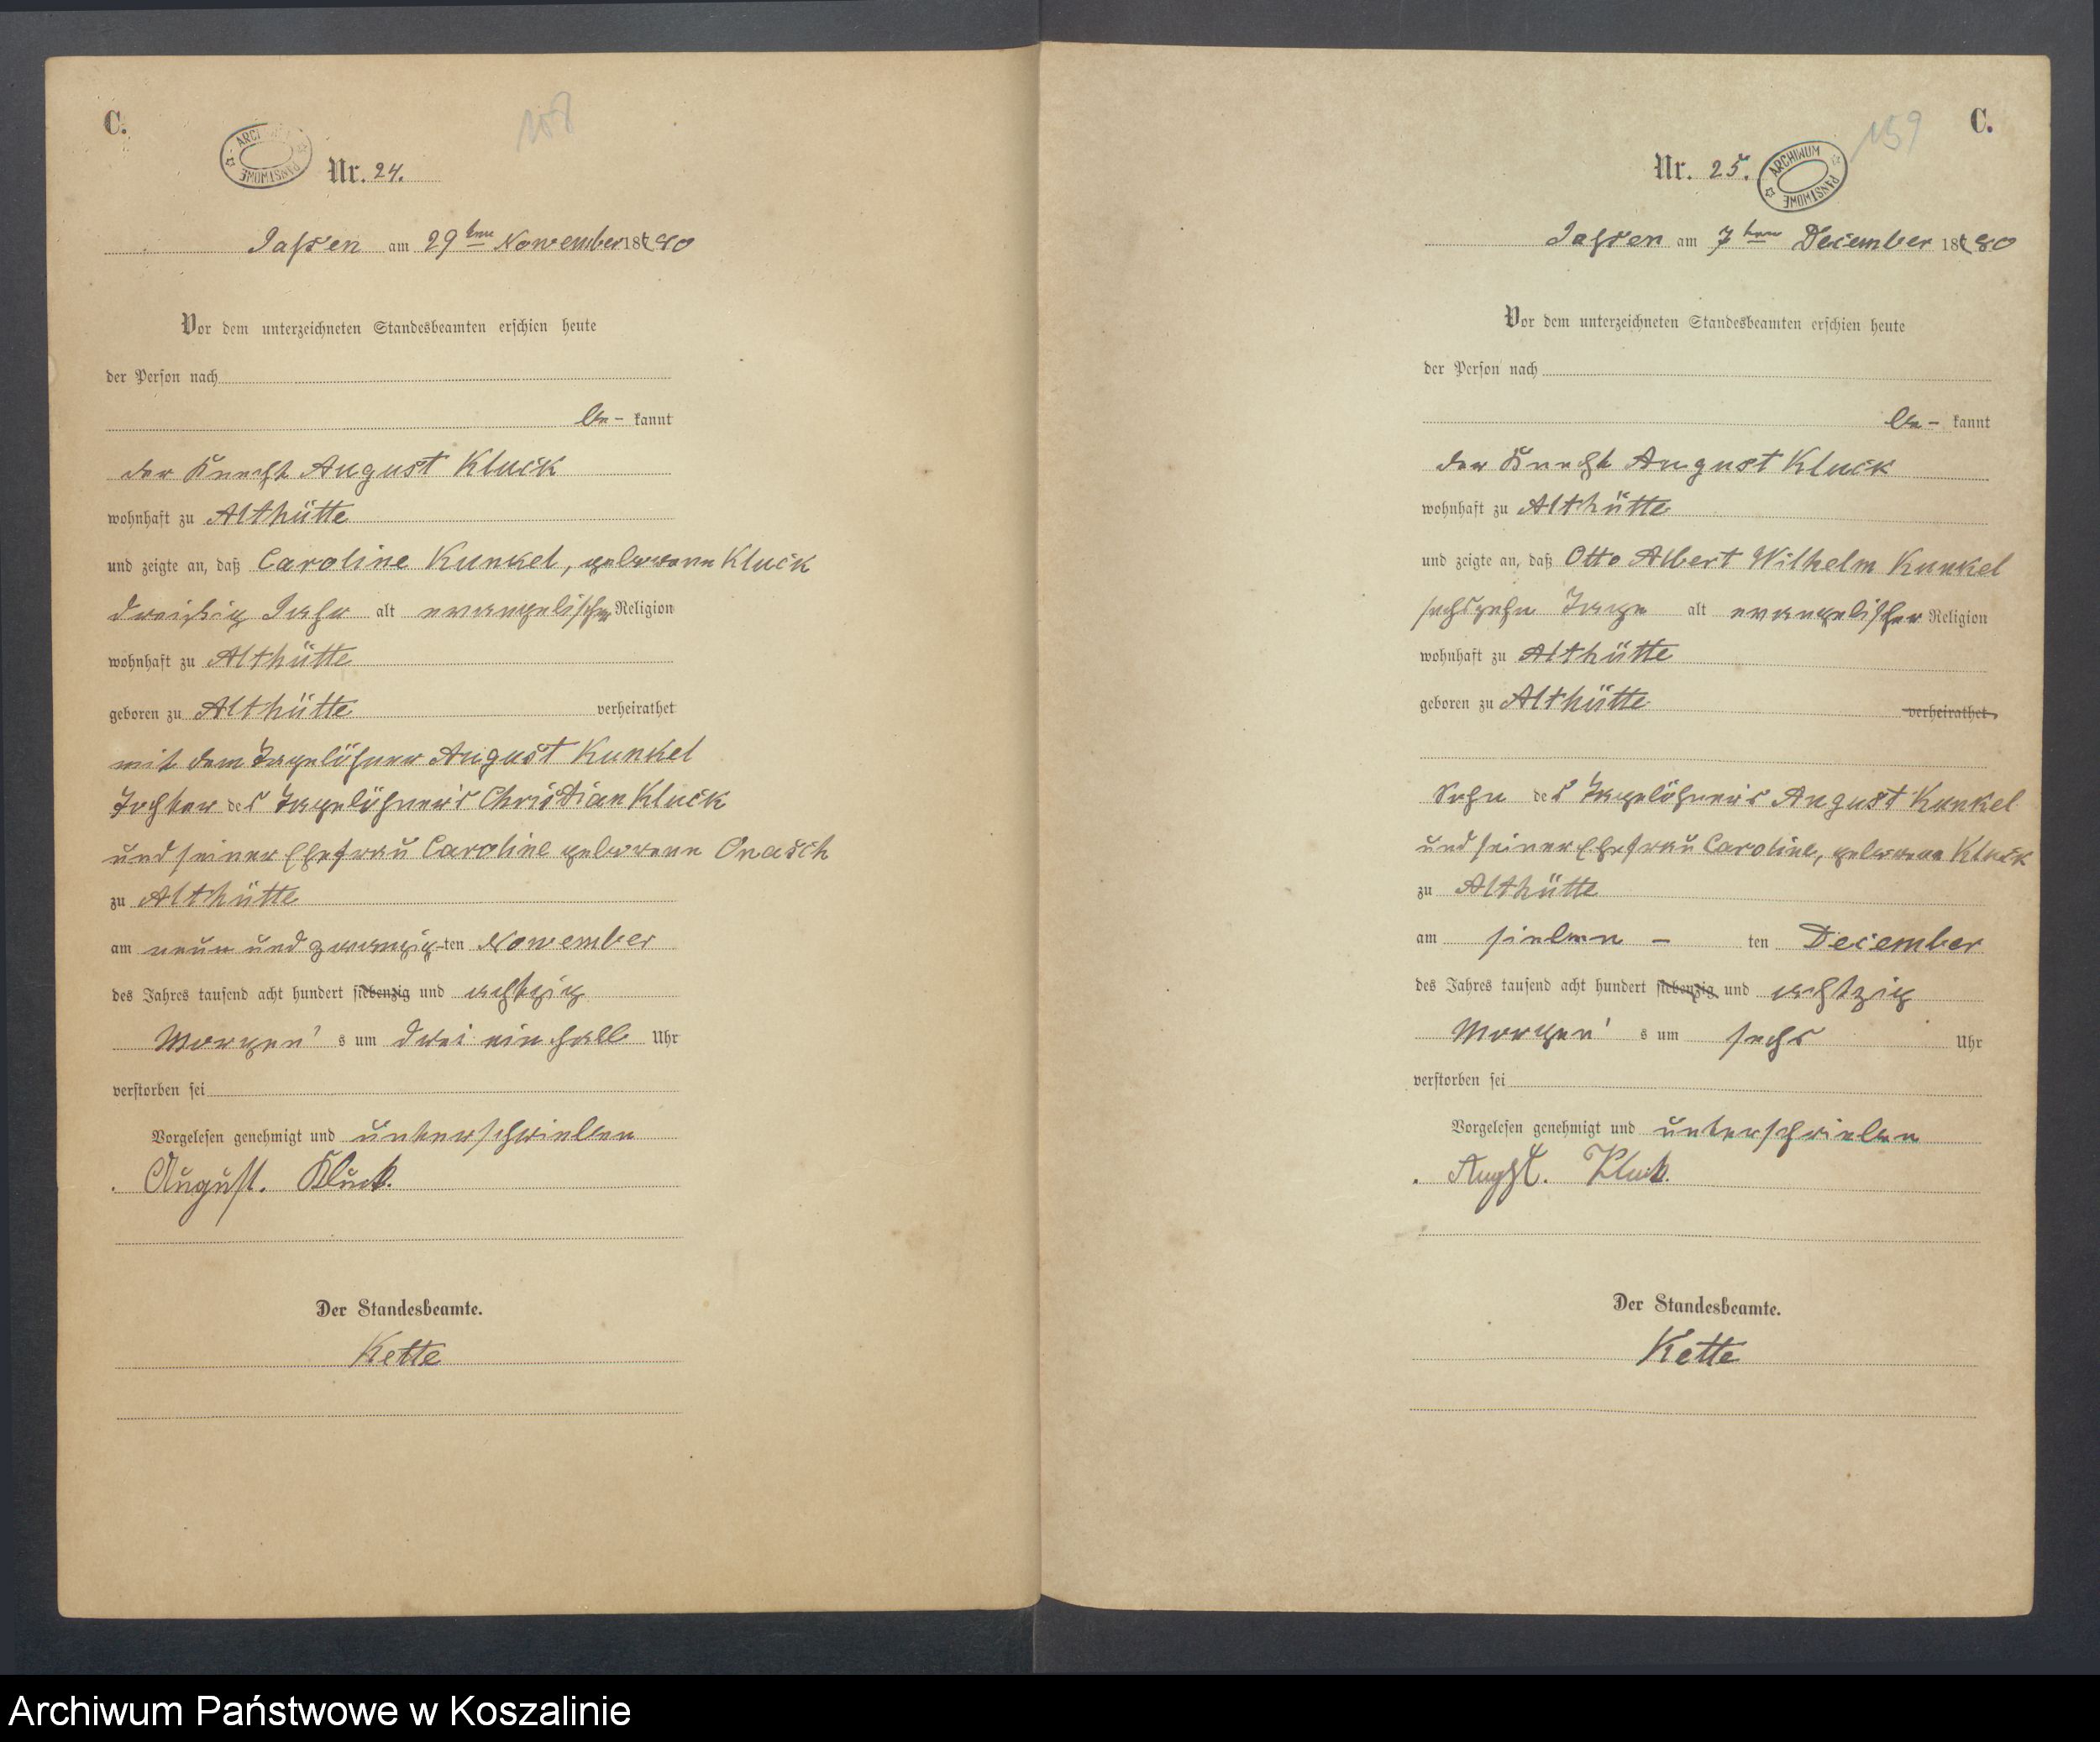 C.
158
ARCHIWUM PAŃSTWOWE
Nr. 24.
Jassen am 29ten November 1880
Vor dem unterzeichneten Standesbeamten erschien heute
der Person nach
be- kannt
der Knecht August Kluck
wohnhaft zu Althütte
und zeigte an, daß Caroline Kunkel, geborene Kluck
dreißig Jahr alt evangelischer Religion
wohnhaft zu Althütte
geboren zu Althütte verheirathet
mit dem Tagelöhner August Kunkel
Tochter des Tagelöhner's Christian Kluck
und seiner Ehefrau Caroline geborene Onasch
zu Althütte
am neun und zwanzig-ten November
des Jahres tausend acht hundert siebenzig und achtzig
Morgen's um drei ein halb Uhr
verstorben sei
Vorgelesen genehmigt und unterschrieben
August. Kluck.
Der Standesbeamte.
Kette
C.
159
Nr. 25.
ARCHIWUM PAŃSTWOWE
Jassen am 7ten December 1880
Vor dem unterzeichneten Standesbeamten erschien heute
der Person nach
be- kannt
der Knecht August Kluck
wohnhaft zu Althütte
und zeigte an, daß Otto Albert Wilhelm Kunkel
sechszehn Tage alt evangelischer Religion
wohnhaft zu Althütte
geboren zu Althütte verheirathet
Sohn des Tagelöhner's August Kunkel
und seiner Ehefrau Caroline, geborene Kluck
zu Althütte
am sieben - ten December
des Jahres tausend acht hundert siebenzig und achtzig
Morgen's um sechs Uhr
verstorben sei
Vorgelesen genehmigt und unterschrieben
Augst. Kluck.
Der Standesbeamte.
Kette
Archiwum Państwowe w Koszalinie